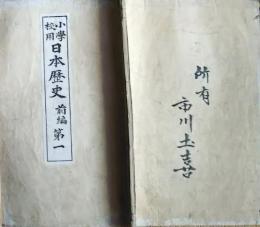 小學校用日本歴史 前編 第一
所有
市川土吉